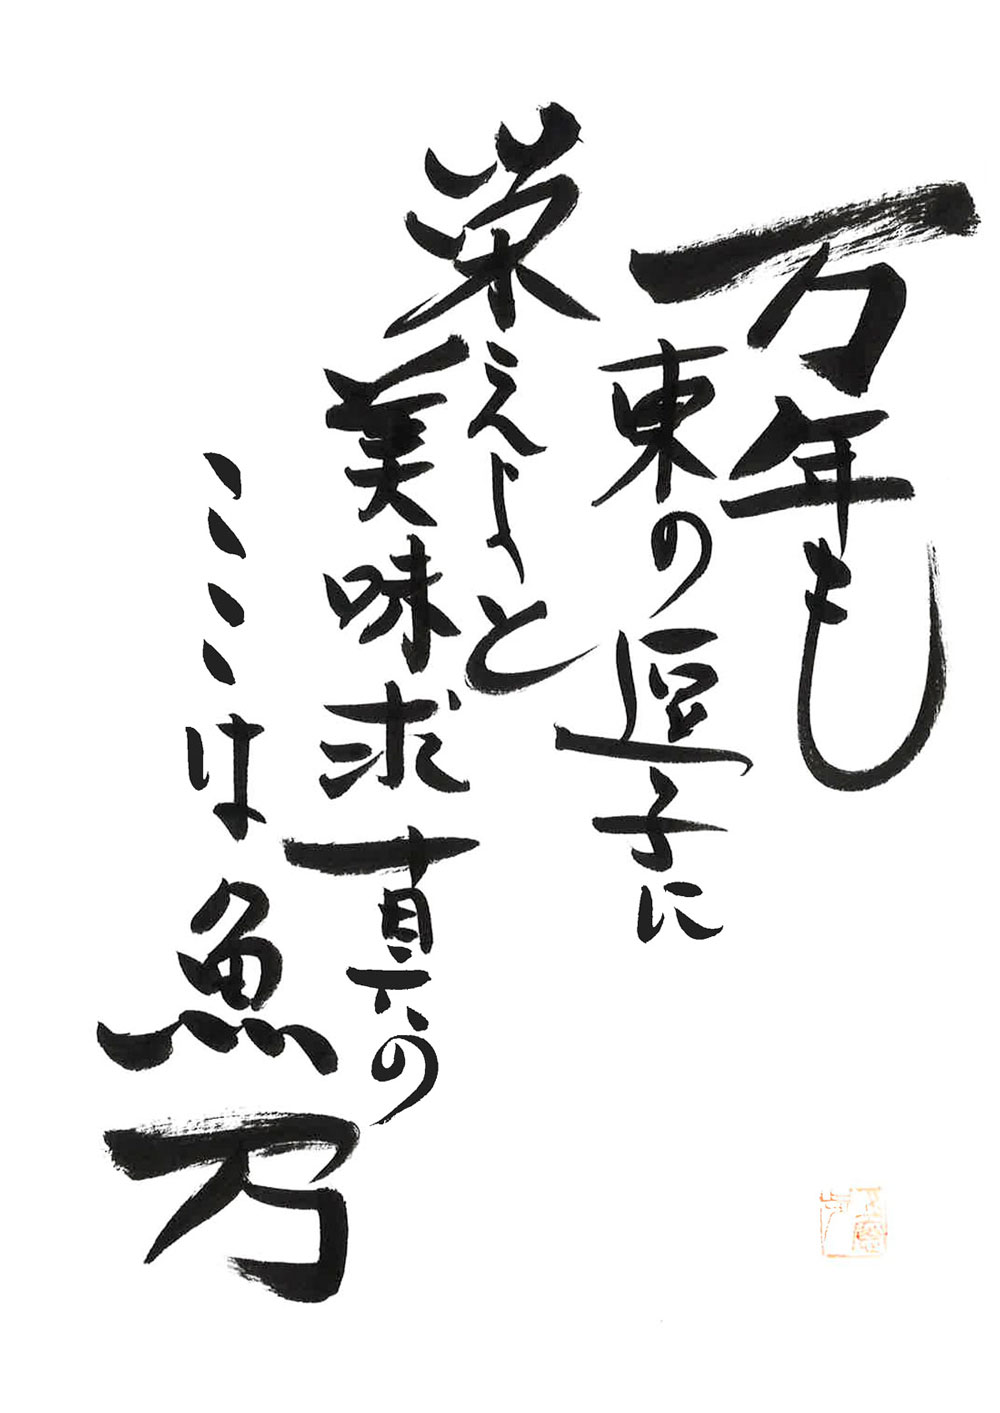 万年も
東の逗子に
栄えよと
美味求真の
ここは魚万